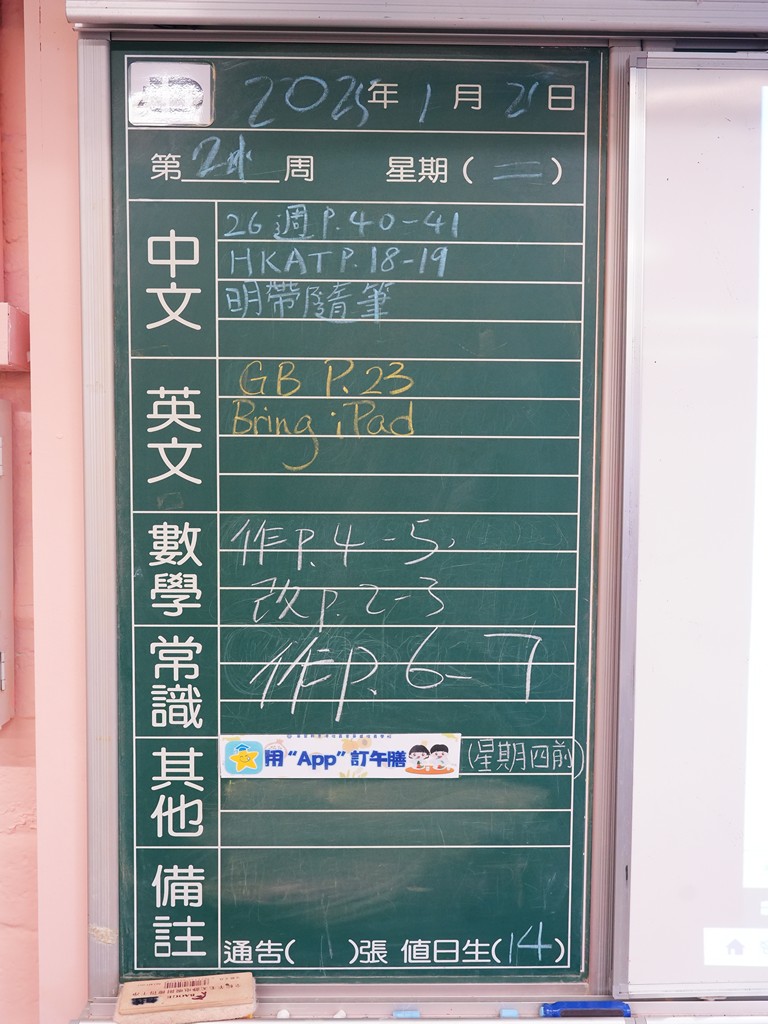 2025年1月21日
第21周 星期(二)
中文
26週P.40-41
HKAT P.18-19
明帶隨筆
英文
GB P.23
Bring iPad
數學
作P.4-5,
改P.2-3
常識
作P.6-7
其他
用“App”訂午膳 (星期四前)
備註
通告(1)張 值日生(14)